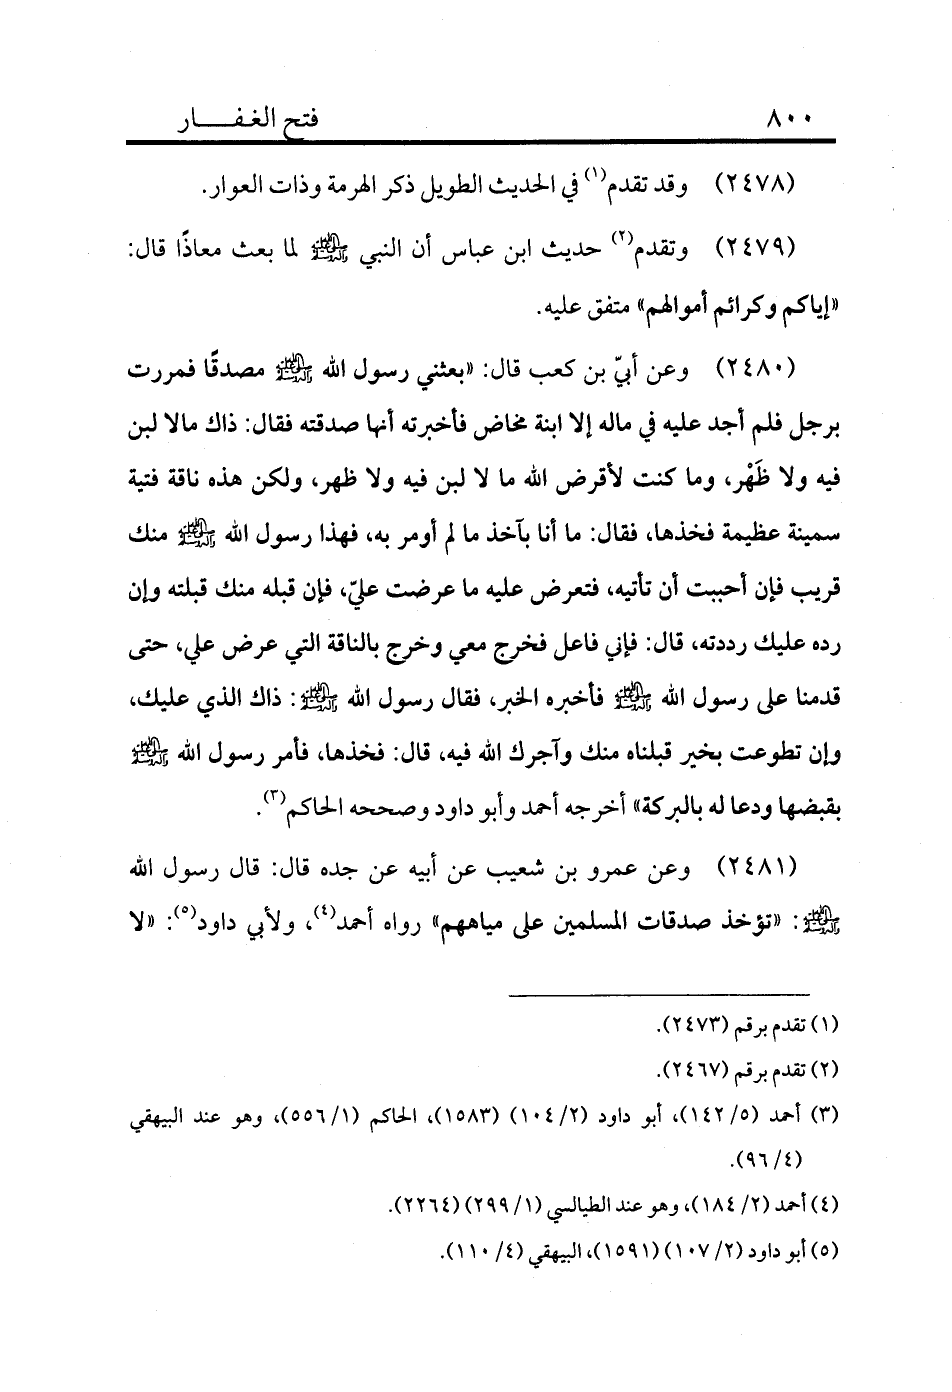 ٨٠٠ فتح الغفـــار
(٢٤٧٨) وقد تقدم(١) في الحديث الطويل ذكر الهرمة وذات العوار.
(٢٤٧٩) وتقدم(٢) حديث ابن عباس أن النبي ﷺ لما بعث معاذًا قال:
«إياكم وكرائم أموالهم» متفق عليه.
(٢٤٨٠) وعن أبيّ بن كعب قال: «بعثني رسول الله ﷺ مصدقًا فمررت
برجل فلم أجد عليه في ماله إلا ابنة مخاض فأخبرته أنها صدقته فقال: ذاك مالا لبن
فيه ولا ظَهْر، وما كنت لأقرض الله ما لا لبن فيه ولا ظهر، ولكن هذه ناقة فتية
سمينة عظيمة فخذها، فقال: ما أنا بآخذ ما لم أومر به، فهذا رسول الله ﷺ منك
قريب فإن أحببت أن تأتيه، فتعرض عليه ما عرضت عليّ، فإن قبله منك قبلته وإن
رده عليك رددته، قال: فإني فاعل فخرج معي وخرج بالناقة التي عرض علي، حتى
قدمنا على رسول الله ﷺ فأخبره الخبر، فقال رسول الله ﷺ: ذاك الذي عليك،
وإن تطوعت بخير قبلناه منك وآجرك الله فيه، قال: فخذها، فأمر رسول الله ﷺ
بقبضها ودعا له بالبركة» أخرجه أحمد وأبو داود وصححه الحاكم(٣).
(٢٤٨١) وعن عمرو بن شعيب عن أبيه عن جده قال: قال رسول الله
ﷺ: «تؤخذ صدقات المسلمين على مياههم» رواه أحمد(٤)، ولأبي داود(٥): «لا
(١) تقدم برقم (٢٤٧٣).
(٢) تقدم برقم (٢٤٦٧).
(٣) أحمد (٥/ ١٤٢)، أبو داود (٢/ ١٠٤) (١٥٨٣)، الحاكم (١/ ٥٥٦)، وهو عند البيهقي
(٤/ ٩٦).
(٤) أحمد (٢/ ١٨٤)، وهو عند الطيالسي (١/ ٢٩٩) (٢٢٦٤).
(٥) أبو داود (٢/ ١٠٧) (١٥٩١)، البيهقي (٤/ ١١٠).